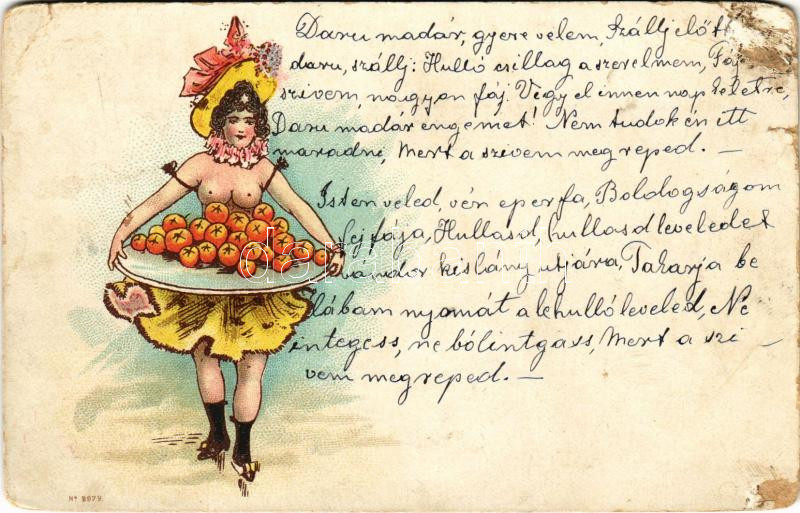 Daru madár, gyere velem, Szállj előtt
daru, szállj: Hulló csillag a szerelmem, Fáj
szivem, nagyon fáj. Vigy el innen nap keletre,
Daru madár engemet! Nem tudok én itt
maradni, Mert a szivem megreped. —
Isten veled, vén eperfa, Boldogságom
fejfája, Hullasd, hullasd leveledet
vándor kislány utjára, Takarja be
lábam nyomát a lehulló leveled, Ne
integess, ne bólintgass, Mert a szi-
vem megreped. —
darabanth
Nº 9979